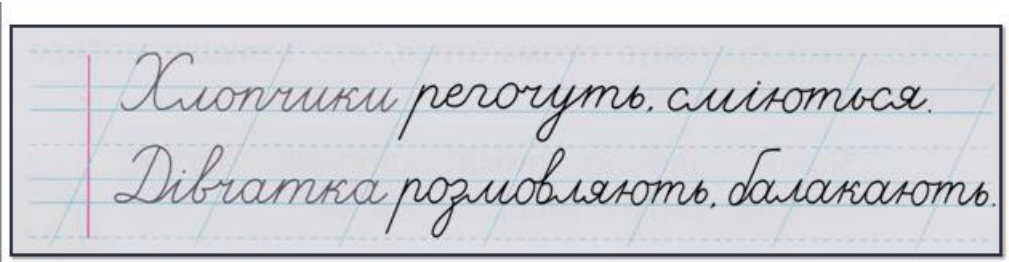 Хлопчики регочуть, сміються.
Дівчатка розмовляють, балакають.